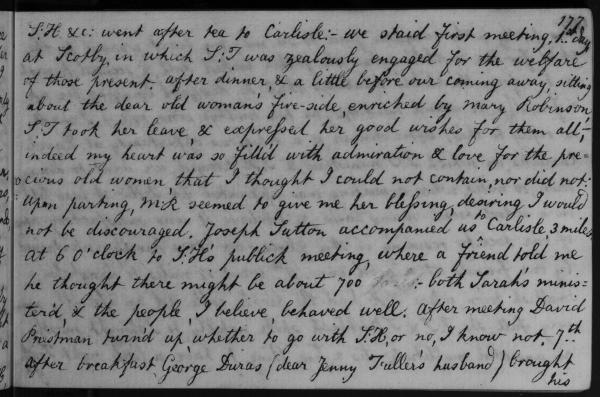 177
S:H &c: went after tea to Carlisle:- we staid first meeting, 1st day
at Scotby, in which S:T was zealously engaged for the welfare
of those present. after dinner, & a little before our coming away, sitting
about the dear old woman's fire-side, enriched by Mary Robinson
S:T took her leave, & expressed her good wishes for them all;-
indeed my heart was so fill'd with admiration & love for the pre-
cious old women that I thought I could not contain, nor did not:
upon parting, M:R seemed to give me her blessing, desiring I would
not be discouraged. Joseph Sutton accompanied us to Carlisle, 3 miles,
at 6 o'clock to S:H's publick meeting, where a friend told me
he thought there might be about 700 :- both Sarah's minis=
ter'd, & the people, I believe, behaved well. After meeting David
Priestman turn'd up, whether to go with S:H, or no, I know not. 7th
after breakfast, George Duras (dear Jenny Fuller's husband) brought
his